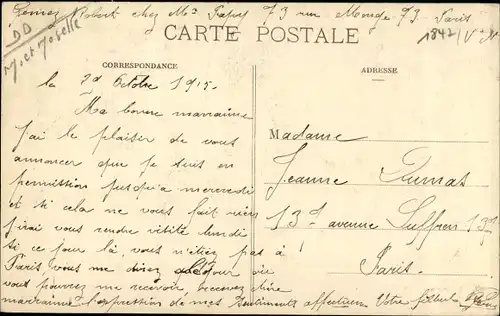 Robert chez Mr 73 rue Monge 73 Paris
CARTE POSTALE
DD
M et Moselle
1842
CORRESPONDANCE
ADRESSE
le 29 Octobre 1915.
Ma bonne marraine
J'ai le plaisir de vous
annoncer que je suis en
permission jusqu'à mercredi
et si cela ne vous fait rien
j'irai vous rendre visite lundi
si ce jour là, vous n'étiez pas à
Paris, vous me direz jour où
vous pourrez me recevoir, recevez chère
marraine l'expression de mes sentiments affectueux Votre filleul
Madame
Jeanne Dumas
13, avenue Suffren 13
Paris.